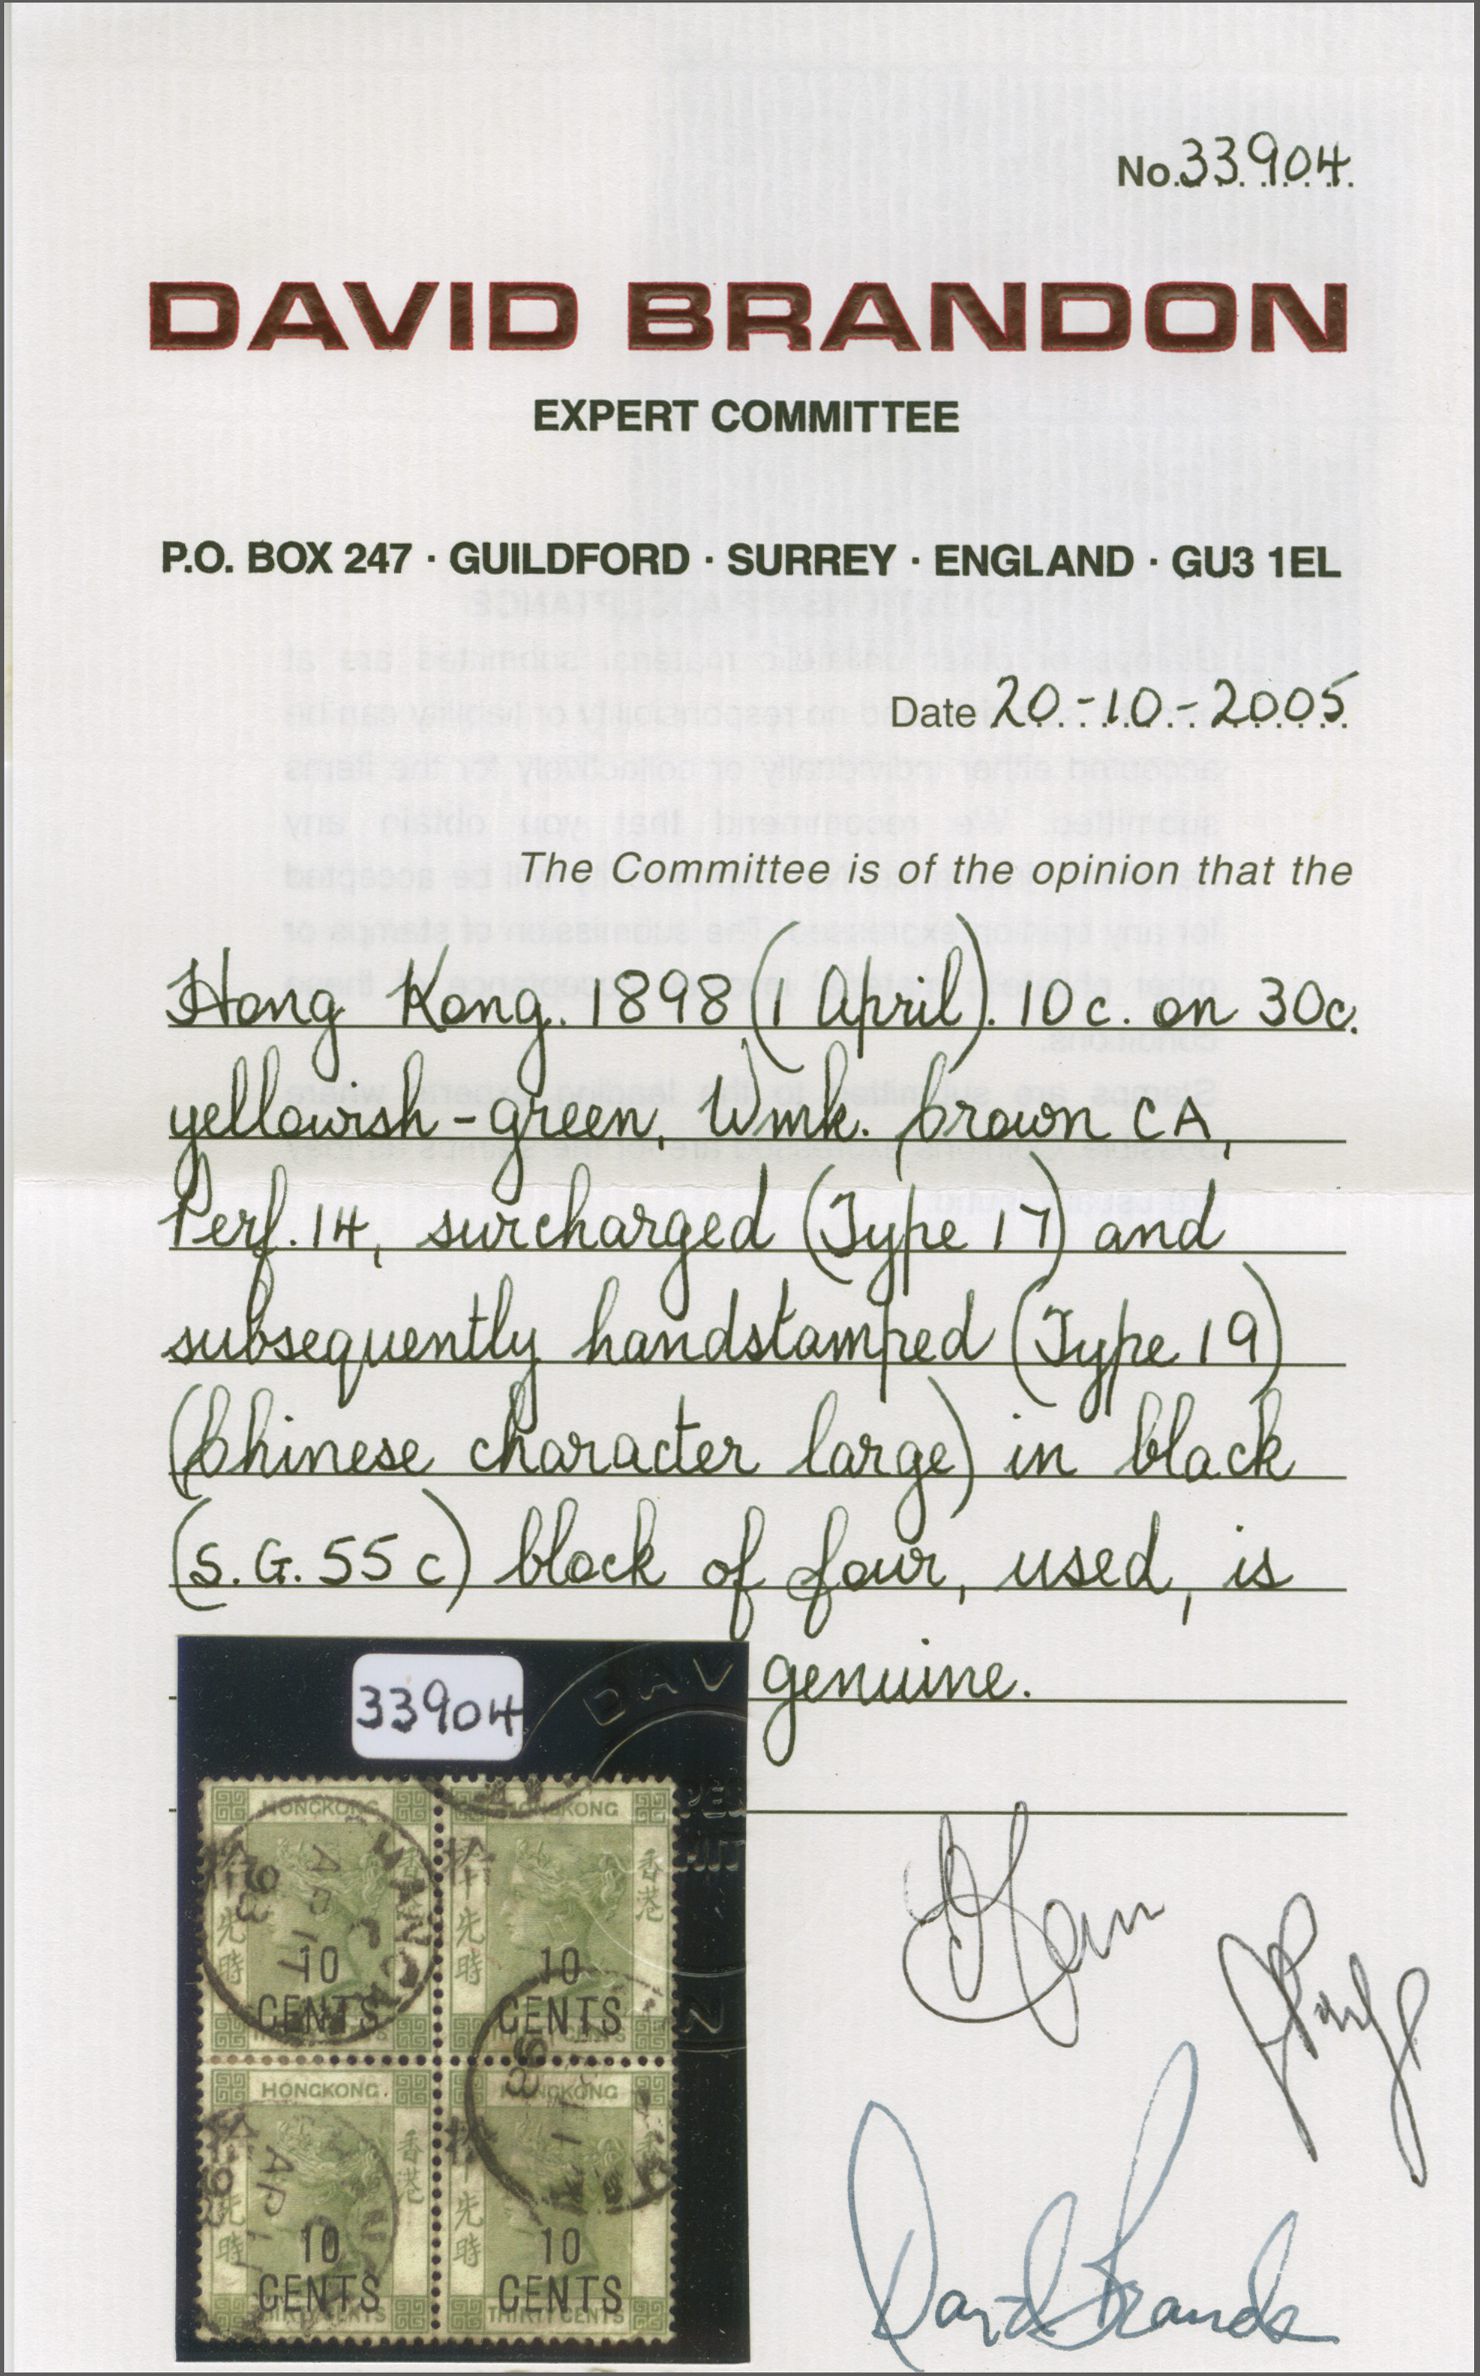 No. 33904
DAVID BRANDON
EXPERT COMMITTEE
P.O. BOX 247 · GUILDFORD · SURREY · ENGLAND · GU3 1EL
Date 20-10-2005
The Committee is of the opinion that the
Hong Kong. 1898 (1 April). 10c. on 30c.
yellowish-green, Wmk. Crown CA,
Perf. 14, surcharged (Type 17) and
subsequently handstamped (Type 19)
(Chinese character large) in black
(S.G. 55c) block of four, used, is
genuine.
33904
DAV
HONGKONG
拾
先
時
香港
10
CENTS
HONGKONG
拾
先
時
香港
10
CENTS
HONGKONG
先
時
香港
10
CENTS
HONGKONG
先
時
10
CENTS
THIRTY CENTS
David Brandon